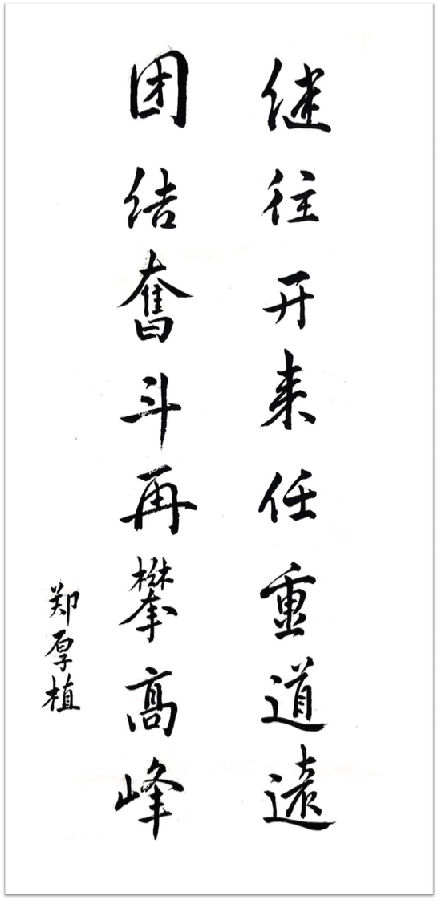 继往开来任重道遠
团结奮斗再攀高峰
郑厚植